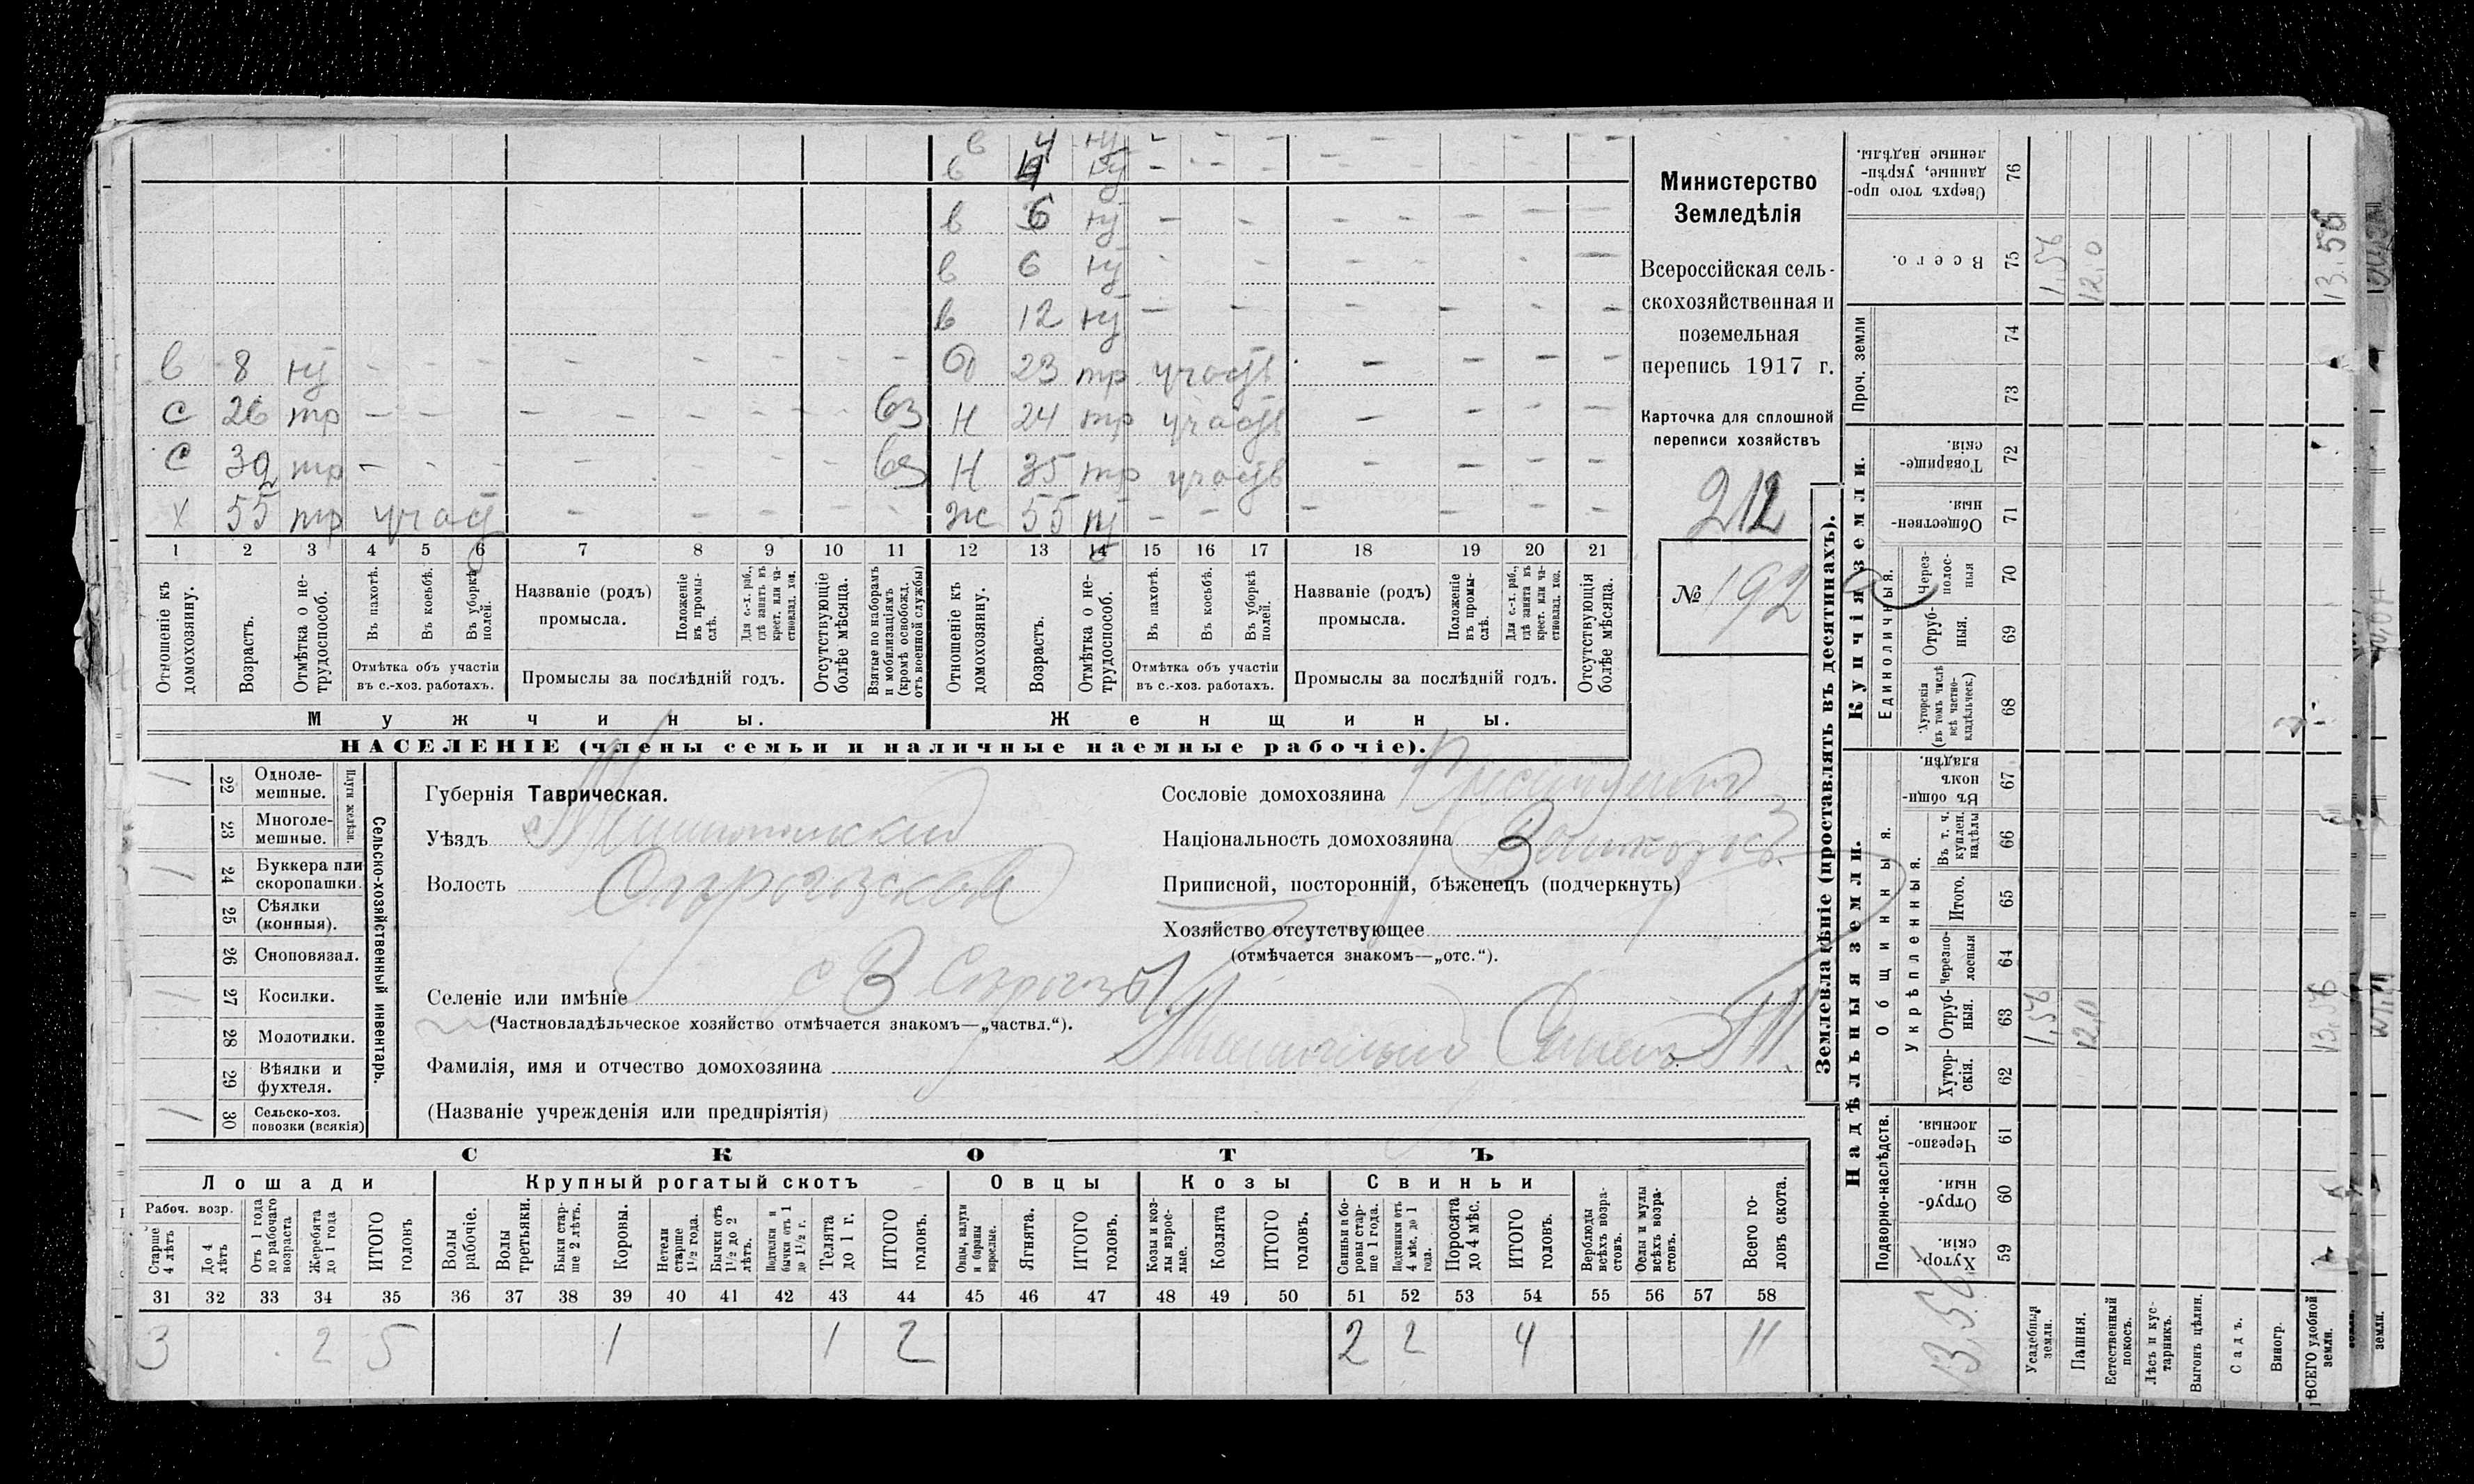 в 4 ну - - - - - - -
в 4 ну - - - - - - -
в 6 ну - - - - - - -
в 6 ну - - - - - - -
в 12 ну - - - - - - -
в 8 ну - - - - - - - - 23 тр участв - - - -
с 26 тр - - - - - - - вз Н 24 тр участв - - - -
с 32 тр - - - - - - вз Н 35 тр участв - - - -
х 55 тр участ - - - - - ж 55 ну - - - - - - -
1 2 3 4 5 6 7 8 9 10 11 12 13 14 15 16 17 18 19 20 21
Отношеніе къ домохозяину.
Возрастъ.
Отмѣтка о нетрудоспособ.
Въ пахотѣ.
Въ косьбѣ.
Въ уборкѣ полей.
Отмѣтка объ участіи въ с.-хоз. работахъ.
Названіе (родъ) промысла.
Положеніе въ промыслѣ.
Для с.-х. раб., гдѣ занятъ въ крест. или частновлад. хоз.
Промыслы за послѣдній годъ.
Отсутствующіе болѣе мѣсяца.
Взятые по наборамъ и мобилизаціямъ (кромѣ освобожд. отъ военной службы)
Отношеніе къ домохозяину.
Возрастъ.
Отмѣтка о нетрудоспособ.
Въ пахотѣ.
Въ косьбѣ.
Въ уборкѣ полей.
Отмѣтка объ участіи въ с.-хоз. работахъ.
Названіе (родъ) промысла.
Положеніе въ промыслѣ.
Для с.-х. раб., гдѣ занята въ крест. или частновлад. хоз.
Промыслы за послѣдній годъ.
Отсутствующія болѣе мѣсяца.
Мужчины. Женщины.
НАСЕЛЕНІЕ (члены семьи и наличные наемные рабочіе).
Министерство
Земледѣлія
Всероссійская сель-
скохозяйственная и
поземельная
перепись 1917 г.
Карточка для сплошной
переписи хозяйствъ
212
№ 192
Сельско-хозяйственный инвентарь.
Плуги желѣзн.
1 22 Одноле-
мешные.
23 Многоле-
мешные.
1 24 Буккера или
скоропашки.
25 Сѣялки
(конныя).
26 Сноповязал.
1 27 Косилки.
28 Молотилки.
29 Вѣялки и
фухтеля.
1 30 Сельско-хоз.
повозки (всякія)
Губернія Таврическая.
Уѣздъ Мелитопольский
Волость
Селеніе или имѣніе с В Серогозы
(Частновладѣльческое хозяйство отмѣчается знакомъ—„частвл.“).
Фамилія, имя и отчество домохозяина
(Названіе учрежденія или предпріятія)
Сословіе домохозяина
Національность домохозяина
Приписной, посторонній, бѣженецъ (подчеркнуть)
Хозяйство отсутствующее
(отмѣчается знакомъ—„отс.“).
СКОТЪ
Лошади Крупный рогатый скотъ Овцы Козы Свиньи
Рабоч. возр.
Старше 4 лѣтъ
До 4 лѣтъ
Отъ 1 года до рабочаго возраста
Жеребята до 1 года
ИТОГО головъ
Волы рабочіе.
Волы третьяки.
Быки старше 2 лѣтъ.
Коровы.
Нетели старше 1½ года.
Бычки отъ 1½ до 2 лѣтъ.
Подтелки и бычки отъ 1 до 1½ г.
Телята до 1 г.
ИТОГО головъ.
Овцы, валухи и бараны взрослые.
Ягнята.
ИТОГО головъ.
Козы и козлы взрослые.
Козлята
ИТОГО головъ.
Свиньи и боровы старше 1 года.
Подсвинки отъ 4 мѣс. до 1 года.
Поросята до 4 мѣс.
ИТОГО головъ.
Верблюды всѣхъ возрастовъ.
Ослы и мулы всѣхъ возрастовъ.
Всего головъ скота.
31 32 33 34 35 36 37 38 39 40 41 42 43 44 45 46 47 48 49 50 51 52 53 54 55 56 57 58
3 2 5 1 1 2 2 2 4 11
Землевладѣніе (проставлять въ десятинахъ).
Купчія земли.
Надѣльныя земли.
Единоличныя.
Общинныя.
Укрѣпленныя.
Подворно-наслѣдств.
Сверхъ того проданные, укрѣпленные надѣлы. 76
Всего. 75 1,56 12,0 13.56
Проч. земли 74 73
Товарищескія. 72
Общественныя. 71
Черезполосныя 70
Отрубныя. 69
Хуторскія (въ томъ числѣ всѣ частновладѣльческ.) 68
Въ общинномъ владѣн. 67
Въ т. ч. куплен. надѣлы 66
Итого. 65
Черезполосныя 64
Отрубныя. 63 1,56 12,0 13.56
Хуторскія. 62
Черезполосныя. 61
Отрубныя. 60
Хуторскія. 59
13,56
Усадебныя земли.
Пашня.
Естественный покосъ.
Лѣсъ и кустарникъ.
Выгонъ цѣлин.
Садъ.
Виногр.
ВСЕГО удобной земли.
земли.